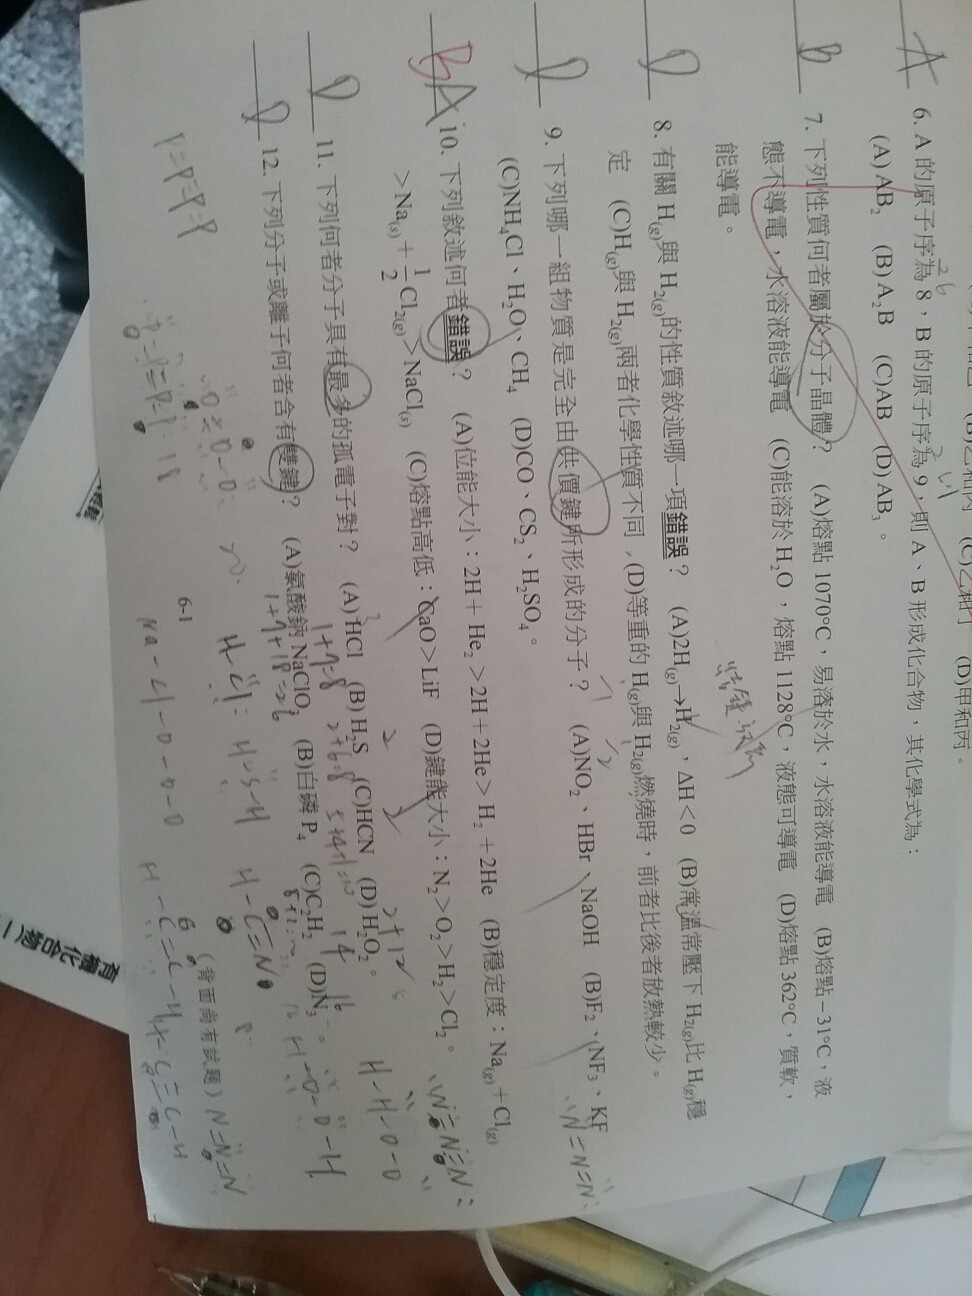 (D)甲和丙。
A 6. A 的原子序為 8，B 的原子序為 9，則 A、B 形成化合物，其化學式為：
(A) AB₂ (B) A₂B (C)AB (D) AB₃。
B 7. 下列性質何者屬於分子晶體？ (A)熔點 1070°C，易溶於水，水溶液能導電 (B)熔點−31°C，液
態不導電，水溶液能導電 (C)能溶於 H₂O，熔點 1128°C，液態可導電 (D)熔點 362°C，質軟，
能導電。
D 8. 有關 H(g)與 H₂(g)的性質敘述哪一項錯誤？ (A)2H(g)→H₂(g)，ΔH<0 (B)常溫常壓下 H₂(g)比 H(g)穩
定 (C)H(g)與 H₂(g)兩者化學性質不同 (D)等重的 H(g)與 H₂(g)燃燒時，前者比後者放熱較少。
D 9. 下列哪一組物質是完全由共價鍵所形成的分子？ (A)NO₂、HBr、NaOH (B)F₂、NF₃、KF
(C)NH₄Cl、H₂O、CH₄ (D)CO、CS₂、H₂SO₄。
BA 10. 下列敘述何者錯誤？ (A)位能大小：2H + He₂ > 2H + 2He > H₂ + 2He (B)穩定度：Na(g) + Cl(g)
>Na(s) + 1/2 Cl₂(g) > NaCl(s) (C)熔點高低：CaO > LiF (D)鍵能大小：N₂ > O₂ > H₂ > Cl₂。
D 11. 下列何者分子具有最多的孤電子對？ (A) HCl (B) H₂S (C)HCN (D) H₂O₂。
D 12. 下列分子或離子何者含有雙鍵？ (A)氯酸鈉 NaClO₃ (B)白磷 P₄ (C)C₂H₂ (D)N₃⁻。
P=P=P=P
Na-Cl-O-O-O
H-S-H
H-C≡N
H-O-O-H
H-H-O-O
N=N=N
6-1
(背面尚有試題)
有機化合物(一